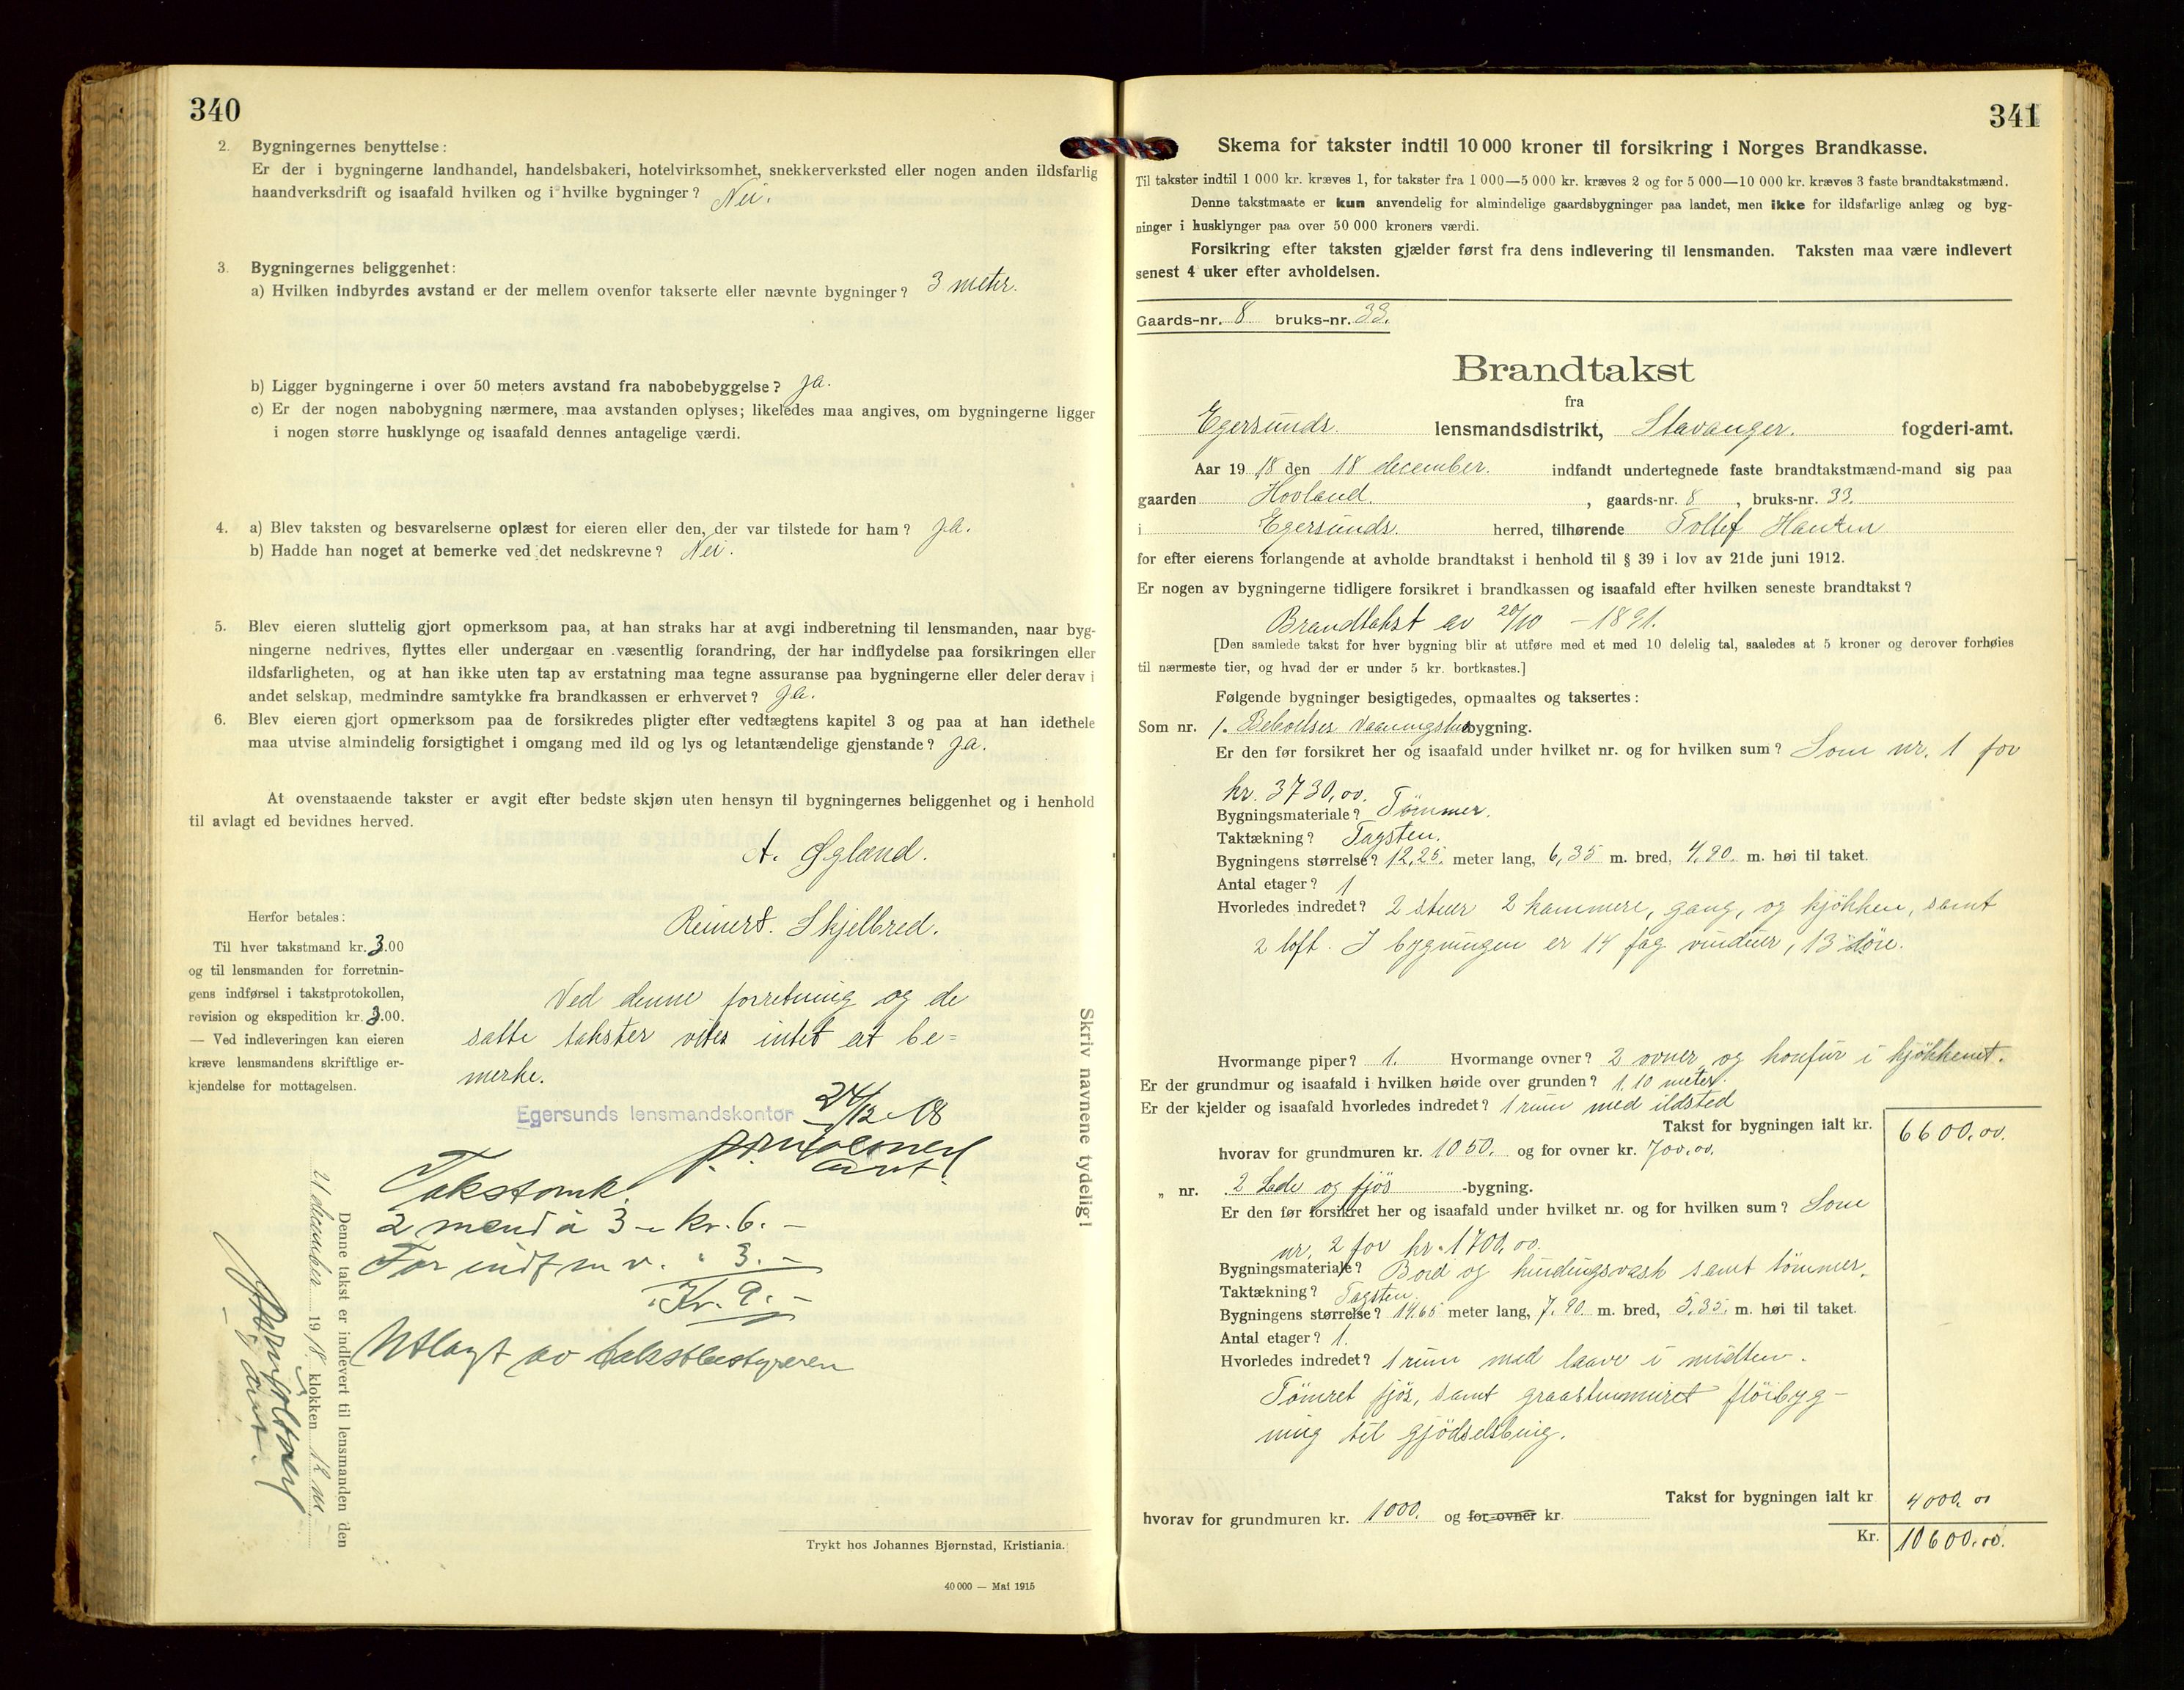 340
2. Bygningernes benyttelse:
Er der i bygningerne landhandel, handelsbakeri, hotelvirksomhet, snekkerverksted eller nogen anden ildsfarlig
haandverksdrift og isaafald hvilken og i hvilke bygninger? Nei.
3. Bygningernes beliggenhet:
a) Hvilken indbyrdes avstand er der mellem ovenfor takserte eller nævnte bygninger? 3 meter.
b) Ligger bygningerne i over 50 meters avstand fra nabobebyggelse? ja.
c) Er der nogen nabobygning nærmere, maa avstanden oplyses; likeledes maa angives, om bygningerne ligger
i nogen større husklynge og isaafald dennes antagelige værdi.
4. a) Blev taksten og besvarelserne oplæst for eieren eller den, der var tilstede for ham? ja.
b) Hadde han noget at bemerke ved det nedskrevne? Nei.
5. Blev eieren sluttelig gjort opmerksom paa, at han straks har at avgi indberetning til lensmanden, naar byg-
ningerne nedrives, flyttes eller undergaar en væsentlig forandring, der har indflydelse paa forsikringen eller
ildsfarligheten, og at han ikke uten tap av erstatning maa tegne assuranse paa bygningerne eller deler derav i
andet selskap, medmindre samtykke fra brandkassen er erhvervet? ja.
6. Blev eieren gjort opmerksom paa de forsikredes pligter efter vedtægtens kapitel 3 og paa at han idethele
maa utvise almindelig forsigtighet i omgang med ild og lys og letantændelige gjenstande? ja.
At ovenstaaende takster er avgit efter bedste skjøn uten hensyn til bygningernes beliggenhet og i henhold
til avlagt ed bevidnes herved.
A. Øgland.
Reinert. Skjelbred.
Herfor betales:
Til hver takstmand kr. 3.00
og til lensmanden for forretnin-
gens indførsel i takstprotokollen,
revision og ekspedition kr. 3.00.
— Ved indleveringen kan eieren
kræve lensmandens skriftlige er-
kjendelse for mottagelsen.
Ved denne forretning og de
satte takster vites intet at be=
merke.
Egersunds lensmandskontor 24/12-18
Takstomk.
2 mænd à 3 - kr. 6. -
For indf m v. " 3. -
Kr. 9. -
Utlagt av takstbestyreren
Denne takst er indlevert til lensmanden den
21 december 1918 klokken 12 m.
Skriv navnene tydelig!
Trykt hos Johannes Bjørnstad, Kristiania.
40 000 — Mai 1915
341
Skema for takster indtil 10 000 kroner til forsikring i Norges Brandkasse.
Til takster indtil 1 000 kr. kræves 1, for takster fra 1 000—5 000 kr. kræves 2 og for 5 000—10 000 kr. kræves 3 faste brandtakstmænd.
Denne takstmaate er kun anvendelig for almindelige gaardsbygninger paa landet, men ikke for ildsfarlige anlæg og byg-
ninger i husklynger paa over 50 000 kroners værdi.
Forsikring efter taksten gjælder først fra dens indlevering til lensmanden. Taksten maa være indlevert
senest 4 uker efter avholdelsen.
Gaards-nr. 8 bruks-nr. 33.
Brandtakst
fra
Egersunds. lensmandsdistrikt, Stavanger. fogderi-amt.
Aar 1918 den 18 december. indfandt undertegnede faste brandtakstmænd-mand sig paa
gaarden Hovland. , gaards-nr. 8 , bruks-nr. 33.
i Egersunds. herred, tilhørende Tollef Hansen
for efter eierens forlangende at avholde brandtakst i henhold til § 39 i lov av 21de juni 1912.
Er nogen av bygningerne tidligere forsikret i brandkassen og isaafald efter hvilken seneste brandtakst?
Brandtakst av 20/10 - 1891.
[Den samlede takst for hver bygning blir at utføre med et med 10 delelig tal, saaledes at 5 kroner og derover forhøies
til nærmeste tier, og hvad der er under 5 kr. bortkastes.]
Følgende bygninger besigtigedes, opmaaltes og taksertes:
Som nr. 1. Beboelses Vaaningshusbygning.
Er den før forsikret her og isaafald under hvilket nr. og for hvilken sum? Som nr. 1 for
kr. 3730,00.
Bygningsmateriale? Tømmer.
Taktækning? Tagsten.
Bygningens størrelse? 12,25. meter lang, 6,35 m. bred, 4,90. m. høi til taket.
Antal etager? 1
Hvorledes indredet? 2 stuer 2 kammere, gang, og kjøkken, samt
2 loft. I bygningen er 14 fag vinduer, 13 døre.
Hvormange piper? 1. Hvormange ovner? 2 ovner, og komfur i kjøkkenet.
Er der grundmur og isaafald i hvilken høide over grunden? 1,10 meter.
Er der kjelder og isaafald hvorledes indredet? 1 rum med ildsted
Takst for bygningen ialt kr. 6600,00.
hvorav for grundmuren kr. 1050. og for ovner kr. 700,00.
„ nr. 2 Lade og fjøs -bygning.
Er den før forsikret her og isaafald under hvilket nr. og for hvilken sum? Som
nr. 2 for kr. 1700,00.
Bygningsmateriale? Bord og bindingsverk samt tømmer.
Taktækning? Tagsten.
Bygningens størrelse? 14,65 meter lang, 7,90. m. bred, 5,35. m. høi til taket.
Antal etager? 1.
Hvorledes indredet? 1 rum med laave i midten.
Tømret fjøs, samt graastenmuret fløibyg-
ning til gjødselsbing.
Takst for bygningen ialt kr 4000,00
hvorav for grundmuren kr. 1000. og for ovner kr
Kr. 10600,00.